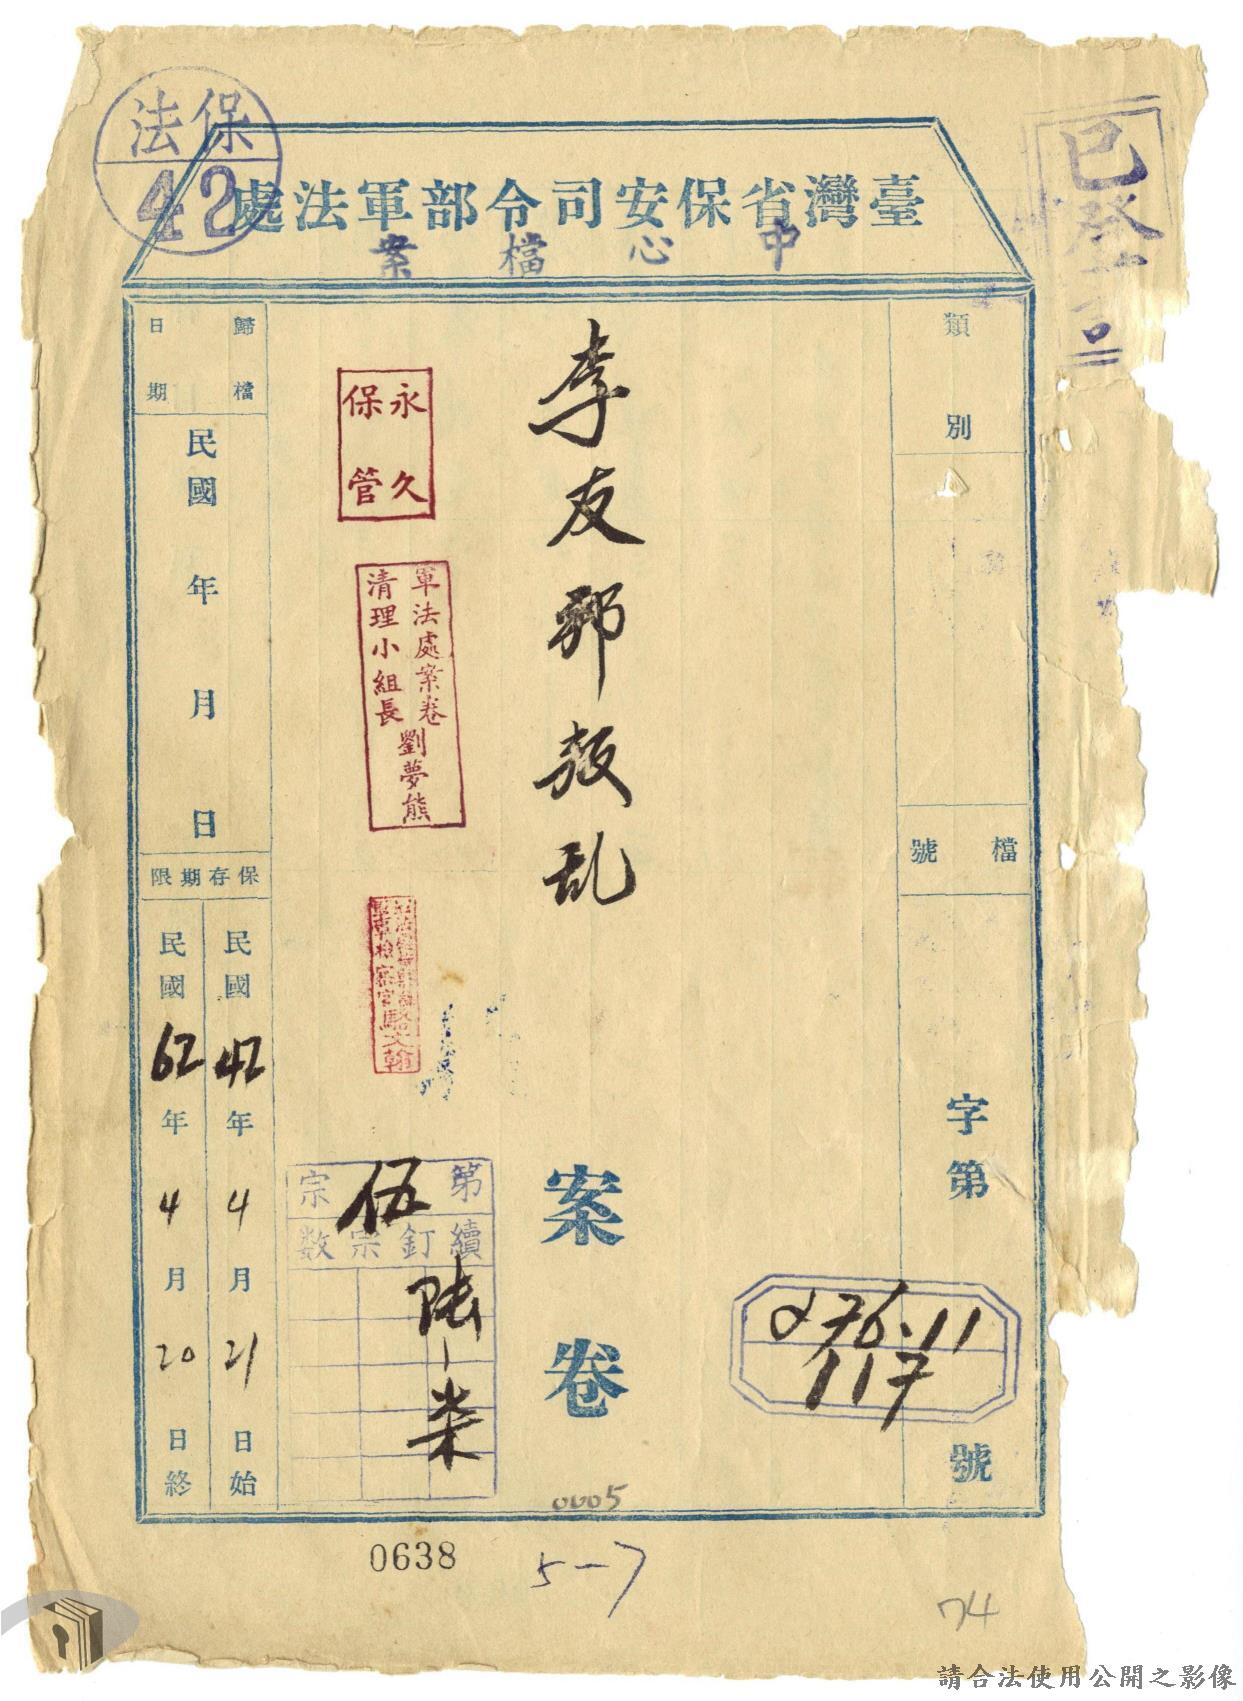 保法
42
已登記
臺灣省保安司令部軍法處
中心檔案
類別
檔號
字第
276.11
117
號
李友邦叛乱
案卷
永久
保管
軍法處案卷
清理小組長
劉夢熊
駱文翰
第伍宗
續釘宗数
陆-柒
歸檔
日期
民國年月日
保存期限
民國42年4月21日始
民國62年4月20日終
0005
0638
5-7
74
請合法使用公開之影像